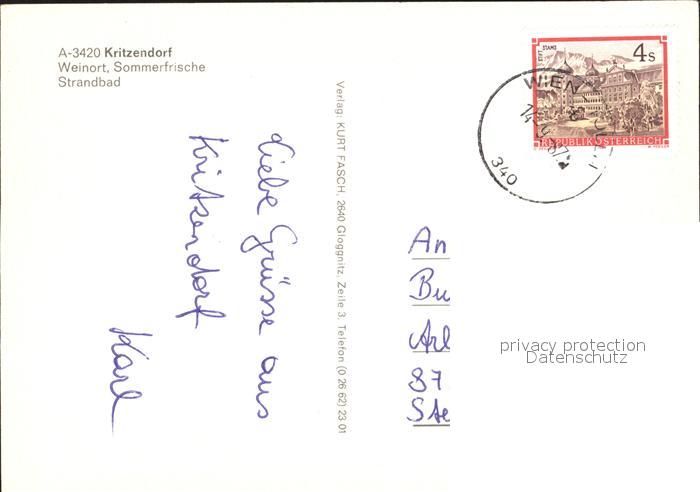 A-3420 Kritzendorf
Weinort, Sommerfrische
Strandbad
Verlag: KURT FASCH, 2640 Gloggnitz, Zeile 3. Telefon (0 26 62) 23 01
Liebe Grüsse aus
Kritzendorf
Karl
STIFT STAMS
4s
REPUBLIK ÖSTERREICH
WIEN
340
An
Bu
Arl
87
Ste
privacy protection
Datenschutz